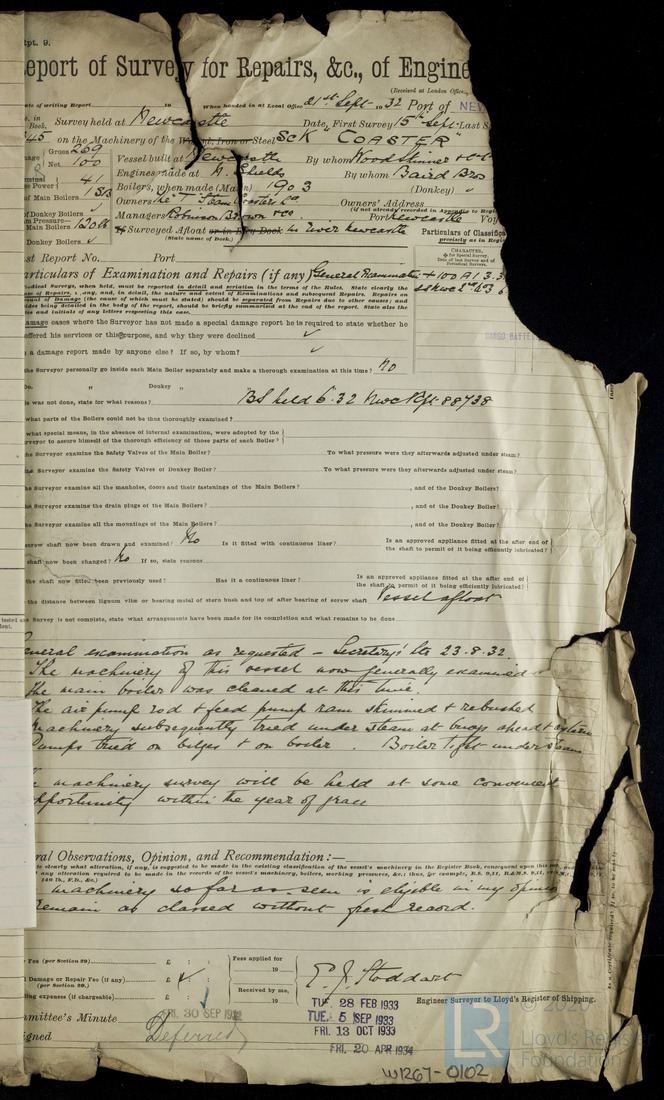 Rpt. 9.
Report of Survey for Repairs, &c., of Engine
(Received at London Office,
Date of writing Report 19 When handed in at Local Office 21st Sept 1932 Port of NEW
Survey held at Newcastle Date, First Survey 15th Sept Last S
on the Machinery of the Wood, Iron or Steel ScK "COASTER"
Gross 269
Net 100
Vessel built at Newcastle By whom Wood Skinner & Co
Engines made at N. Shields By whom Baird Bros
Boilers, when made (Main) 1903 (Donkey)
Owners The "T" Steam Coasters Co Owners' Address
(if not already recorded in Appendix to Regis
Managers Robinson Brown & Co Port Newcastle Voy
If Surveyed Afloat or in Dry Dock in River Newcastle
(State name of Dock.)
Particulars of Classifica
precisely as in Regis
CHARACTER,
st Report No. Port
Particulars of Examination and Repairs (if any) General Examination +100A1 3.3
damage cases where the Surveyor has not made a special damage report he is required to state whether he
offered his services or this purpose, and why they were declined
a damage report made by anyone else? If so, by whom?
the Surveyor personally go inside each Main Boiler separately and make a thorough examination at this time? No
Do. " Donkey "
was not done, state for what reasons? BS held 6.32 Nwc Rpt. 88738
what parts of the Boilers could not be thus thoroughly examined?
what special means, in the absence of internal examination, were adopted by the
Surveyor to assure himself of the thorough efficiency of those parts of each Boiler?
the Surveyor examine the Safety Valves of the Main Boiler? To what pressure were they afterwards adjusted under steam?
the Surveyor examine the Safety Valves of Donkey Boiler? To what pressure were they afterwards adjusted under steam?
the Surveyor examine all the manholes, doors and their fastenings of the Main Boilers? , and of the Donkey Boilers?
the Surveyor examine the drain plugs of the Main Boilers? , and of the Donkey Boiler?
the Surveyor examine all the mountings of the Main Boilers? , and of the Donkey Boiler?
screw shaft now been drawn and examined? No Is it fitted with continuous liner? Is an approved appliance fitted at the after end of
the shaft to permit of it being efficiently lubricated?
shaft now been changed? No If so, state reasons
the shaft now fitted been previously used? Has it a continuous liner? Is an approved appliance fitted at the after end of
the shaft to permit of it being efficiently lubricated?
the distance between lignum vitæ or bearing metal of stern bush and top of after bearing of screw shaft Vessel afloat
Survey is not complete, state what arrangements have been made for its completion and what remains to be done
General examination as requested – Secretary's ltr 23.8.32.
The machinery of this vessel now generally examined
The main boiler was cleaned at this time.
The air pump rod & feed pump ram skimmed & rebushed
Machinery subsequently tried under steam at buoys ahead & astern
Pumps tried on bilges & on boiler. Boiler tight under steam
machinery survey will be held at some convenient
opportunity within the year of grace
General Observations, Opinion, and Recommendation:—
machinery so far as seen is eligible in my opinion
remain as classed without fresh record.
Fee (per Section 29) £ : : Fees applied for
19
Damage or Repair Fee (if any) £ : :
(per Section 29.)
Received by me,
19
expenses (if chargeable) £ : :
E. J. Stoddart
Engineer Surveyor to Lloyd's Register of Shipping.
Committee's Minute FRI. 30 SEP 1932
Deferred
TUE. 28 FEB 1933
TUE. 5 SEP 1933
FRI. 13 OCT 1933
FRI. 20 APR 1934
W1267-0102
LR
© 2020
Lloyd's Register
Foundation